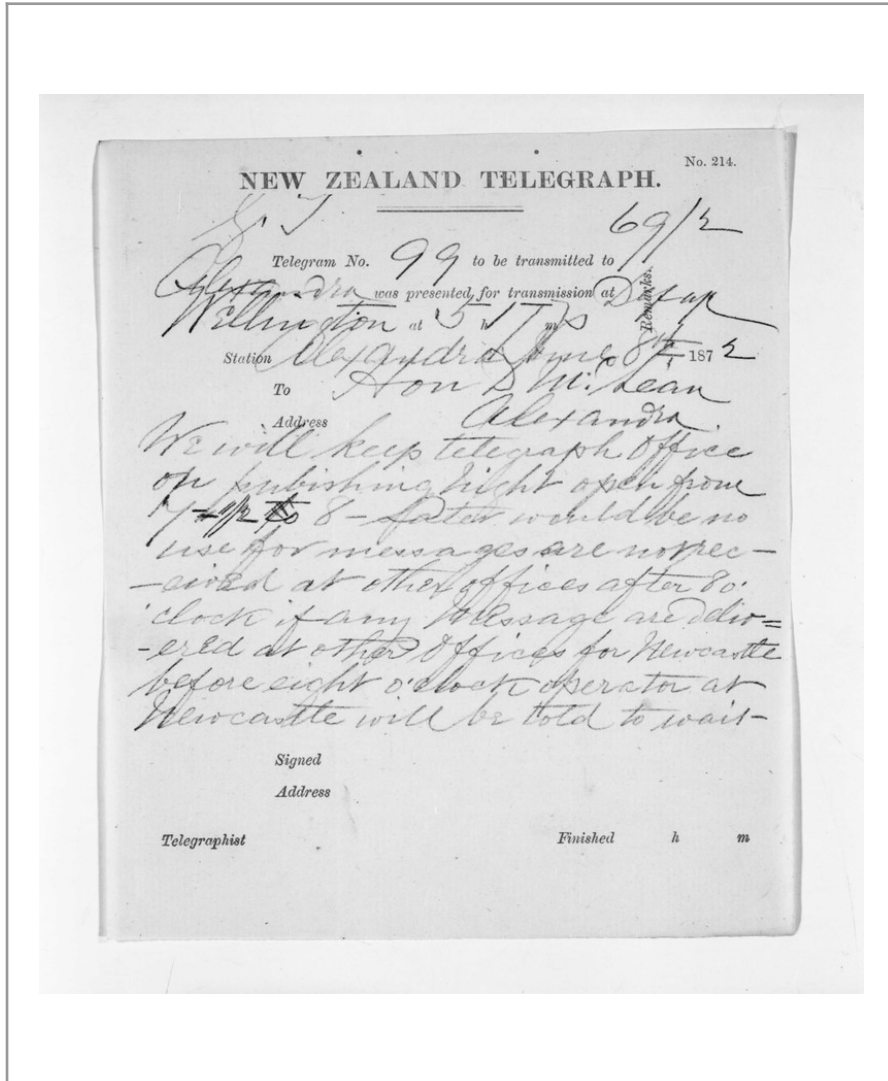 No. 214.
NEW ZEALAND TELEGRAPH.
69/2
Telegram No. 99 to be transmitted to
Alexandra was presented for transmission at
Remarks.
Wellington at 5 h m
Station Alexandra June 8th 1872
To Hon D McLean
Address Alexandra
We will keep telegraph Office
on night open from
7 - 1/2 to 8 - later would be no
use for messages are not rec-
-eived at other offices after 8 o'
'clock if any Message are deliv=
-ered at other Offices for Newcastle
before eight o'clock operator at
Newcastle will be told to wait-
Signed
Address
Telegraphist Finished h m